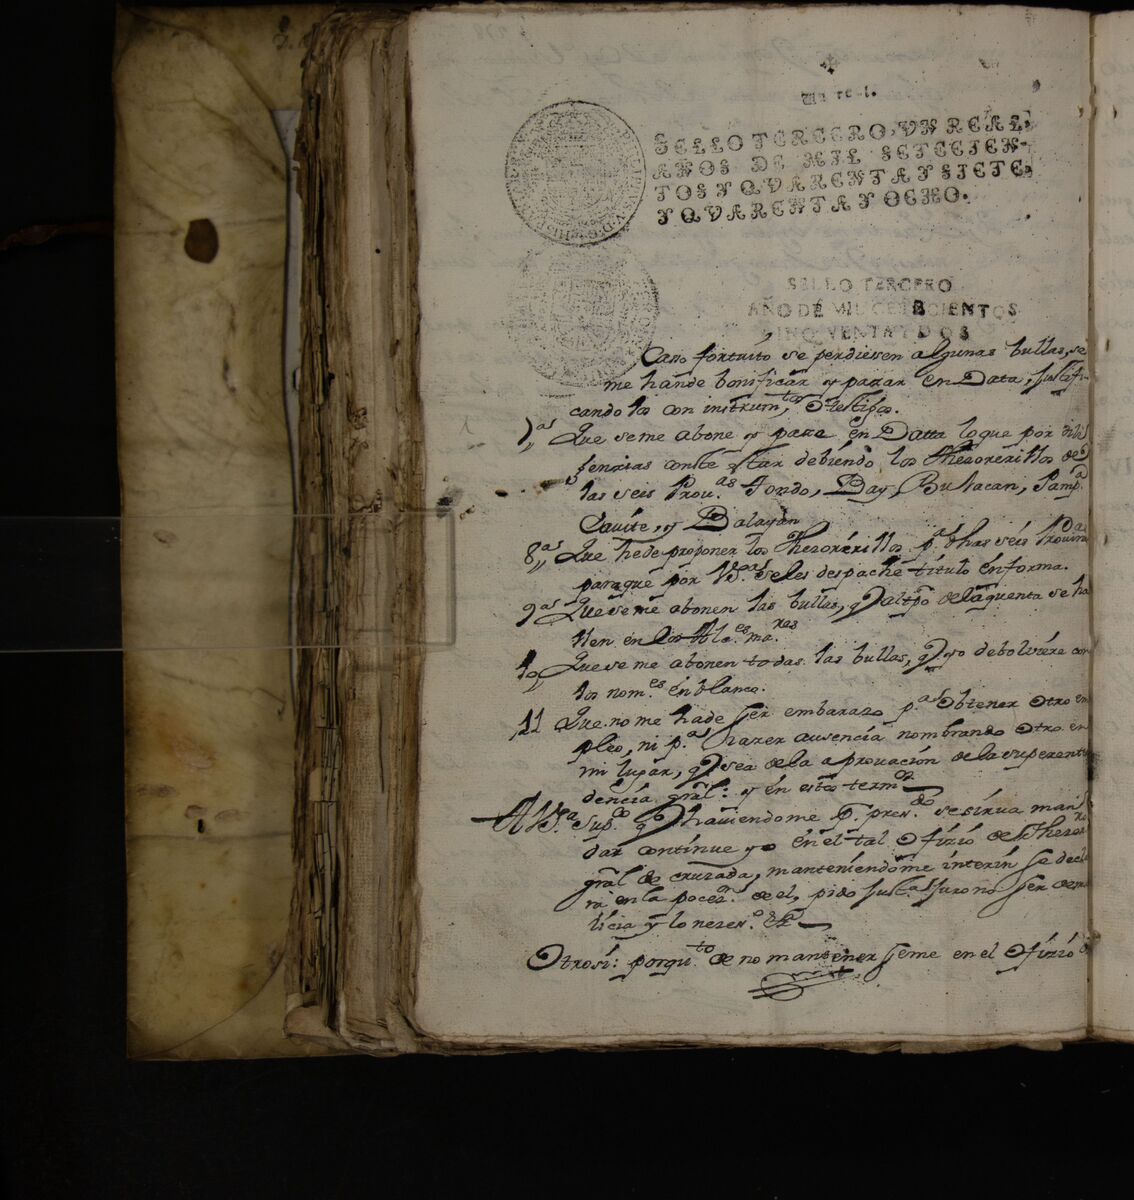 Un real.
SELLO TERCERO, VN REAL,
AÑOS DE MIL SETECIEN-
TOS Y QVARENTA Y SIETE,
Y QVARENTA Y OCHO.
SELLO TERCERO
AÑO DE MIL SETECIENTOS
CINQVENTA Y DOS
Caso fortuito se perdiesen algunas bullas, se
me hande bonificar y pazar en Data, justifi-
candolas con instrum.tos, o testigos.
7,,as Que seme abone y paze en Datta loque por dili
jenzias conste estar debiendo, los Thezorerillos de
las seis Prou.as Tondo, Bay, Bulacan, Pamp.a
Cavite, y Balayan
8,,as Que hede proponer los Thezorerillos p.a dhas seis Prouin.as
paraque por V.S.a seles despache titulo enforma.
9as Que seme abonen las bullas, q altpõ delaquenta se ha
llen en los Alc.es ma.res
10,, Que se me abonen todas las bullas, q yo debolviere con
los nom.es en blanco.
11 Que no me hade ser embarazo p.a obtener otro em
pleo, ni p.a hazer ausencia nombrando otro en
mi lugar, q sea dela aprouación dela superenten
dencia gräl: y en estos termos
A V.S.a sup.co q haviendome p. pres.do se sirua man
dar continue yo en el tal ofizio de Thezor.ro
gräl de cruzada, manteniendome interin se decla
ra en la pocez.n de el, pido just.a juro no ser de ma
licia y lo nezes.o &.a
Otrosi: porqu.to de no mantenerseme en el ofizio de